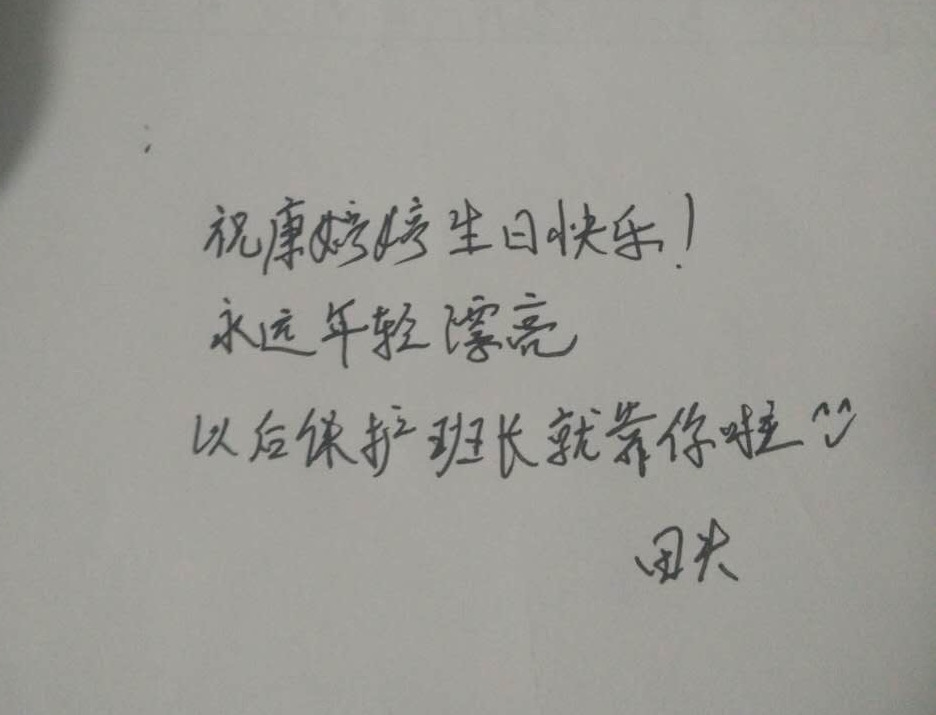 祝康婷婷生日快乐!
永远年轻漂亮
以后保护班长就靠你啦^^
田光